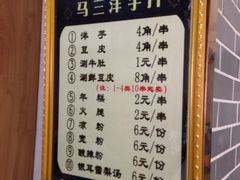 马三洋芋片
① 洋芋 4角/串
② 豆皮 4角/串
③ 涮牛肚 1元/串
④ 涮鲜豆皮 8角/串
(注:1-4类10串起卖)
⑤ 年糕 2元/串
⑥ 火腿 2元/串
⑦ 凉粉 6元/份
⑧ 宽粉 6元/份
⑨ 酸辣粉 6元/份
⑩ 银耳雪梨汤 6元/份